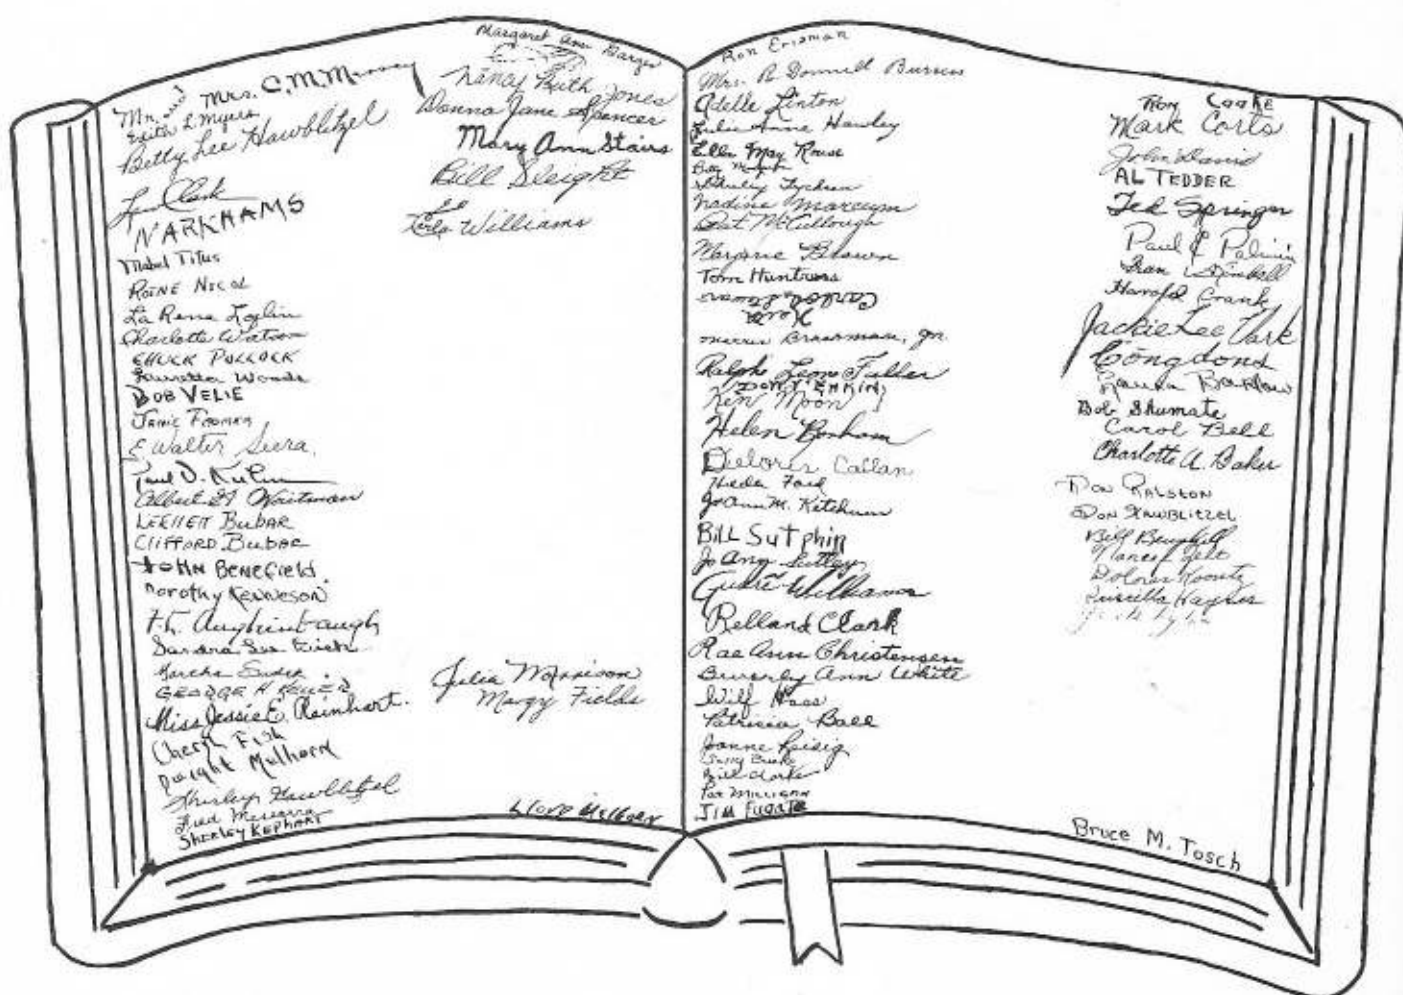 Mr. and Mrs. C.M.
Edith L. Myers
Betty Lee Hawblitzel
Clark
NARKHAMS
Mabel Titus
ROENE NICOL
La Rena
Charlotte Watson
CHUCK POLLOCK
Woods
BOB VELIE
JANIE
E Walter
Paul D.
Albert
BUBAR
CLIFFORD BUBAR
JOHN BENEFIELD
Dorothy Kenneson
F.L. Aughinbaugh
Sandra Sue
GEORGE H KELLER
Miss Jessie E. Reinhart.
Cheryl Fish
Dwight Mulhern
Shirley Hawblitzel
Fred
SHIRLEY KEPHART
Margaret Ann Barger
Nancy Ruth Jones
Donna Jane Spencer
Mary Ann Stairs
Bill Sleight
Williams
Julia Morrison
Margy Fields
LLOYD
Ron Erisman
Mrs. R. Donnell Burris
Adelle Linton
Julia Anne Hawley
Ella May Rouse
Betty
Shirley
Nadine Marcum
Pat McCullough
Marjorie Brown
Tom Huntress
Braverman, Jr.
Ralph Leon Fuller
Ken Moon
Helen Bonham
Delores Callan
Ford
Jo Ann M. Ketchum
Bill Sutphin
Jo Ann Sutley
Williams
Relland Clark
Rae Ann Christensen
Beverly Ann White
Wilf Haas
Patricia Ball
Joanne Leisig
Sally
Bill Clarke
Pat MILLIGAN
JIM Fugate
Tom Cooke
Mark Corts
John Davis
AL TEDDER
Ted Springer
Paul
Fran Kimball
Harold Crank
Jackie Lee Vark
Congdons
Barlow
Bob Shumate
Carol Bell
Charlotte A. Baker
DON RALSTON
DON HAWBLITZEL
Bill
Nancy
Dolores Koontz
Priscilla Kayser
Bruce M. Tosch